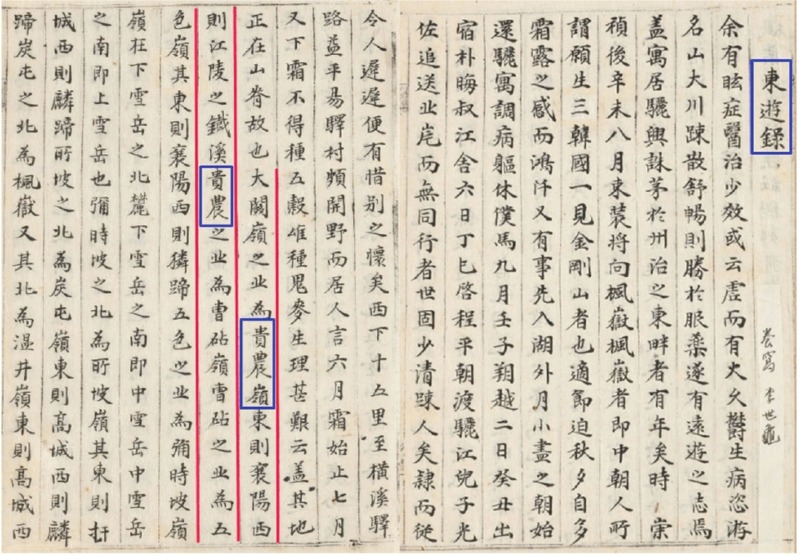 東遊錄
養窩 李世龜
余有眩症醫治少效或云虛而有火久鬱生病恣游
名山大川踈散舒暢則勝於服藥遂有遠遊之志焉
盖寓居驪興誅茅於州治之東畔者有年矣時 崇
禎後辛未八月東裝將向楓嶽楓嶽者即中朝人所
謂願生三韓國一見金剛山者也適節迫秋夕自多
霜露之感而鴻阡又有事先入湖外月小盡之朝始
還驪寓調病軀休僕馬九月壬子朔越二日癸丑出
宿朴晦叔江舍六日丁巳啓程平朝渡驪江兒子光
佐追送北岸而無同行者世固少清踈人矣隷而從
令人遲遲便有惜别之懷矣西下十五里至橫溪驛
路益平易驛村頗開野而居人言六月霜始止七月
又下霜不得種五穀雄種鬼麥生理甚艱云盖其地
正在山脊故也大關嶺之北為貴農嶺東則襄陽西
則江陵之鐵溪貴農之北為曺砧嶺曺砧之北為五
色嶺其東則襄陽西則獜蹄五色之北為彌時坡嶺
嶺在下雪岳之北麓下雪岳之南即中雪岳中雪岳
之南即上雪岳也彌時坡之北為所坡嶺其東則扞
城西則麟蹄所坡之北為炭屯嶺東則高城西則麟
蹄炭屯之北為楓嶽又其北為温井嶺東則高城西